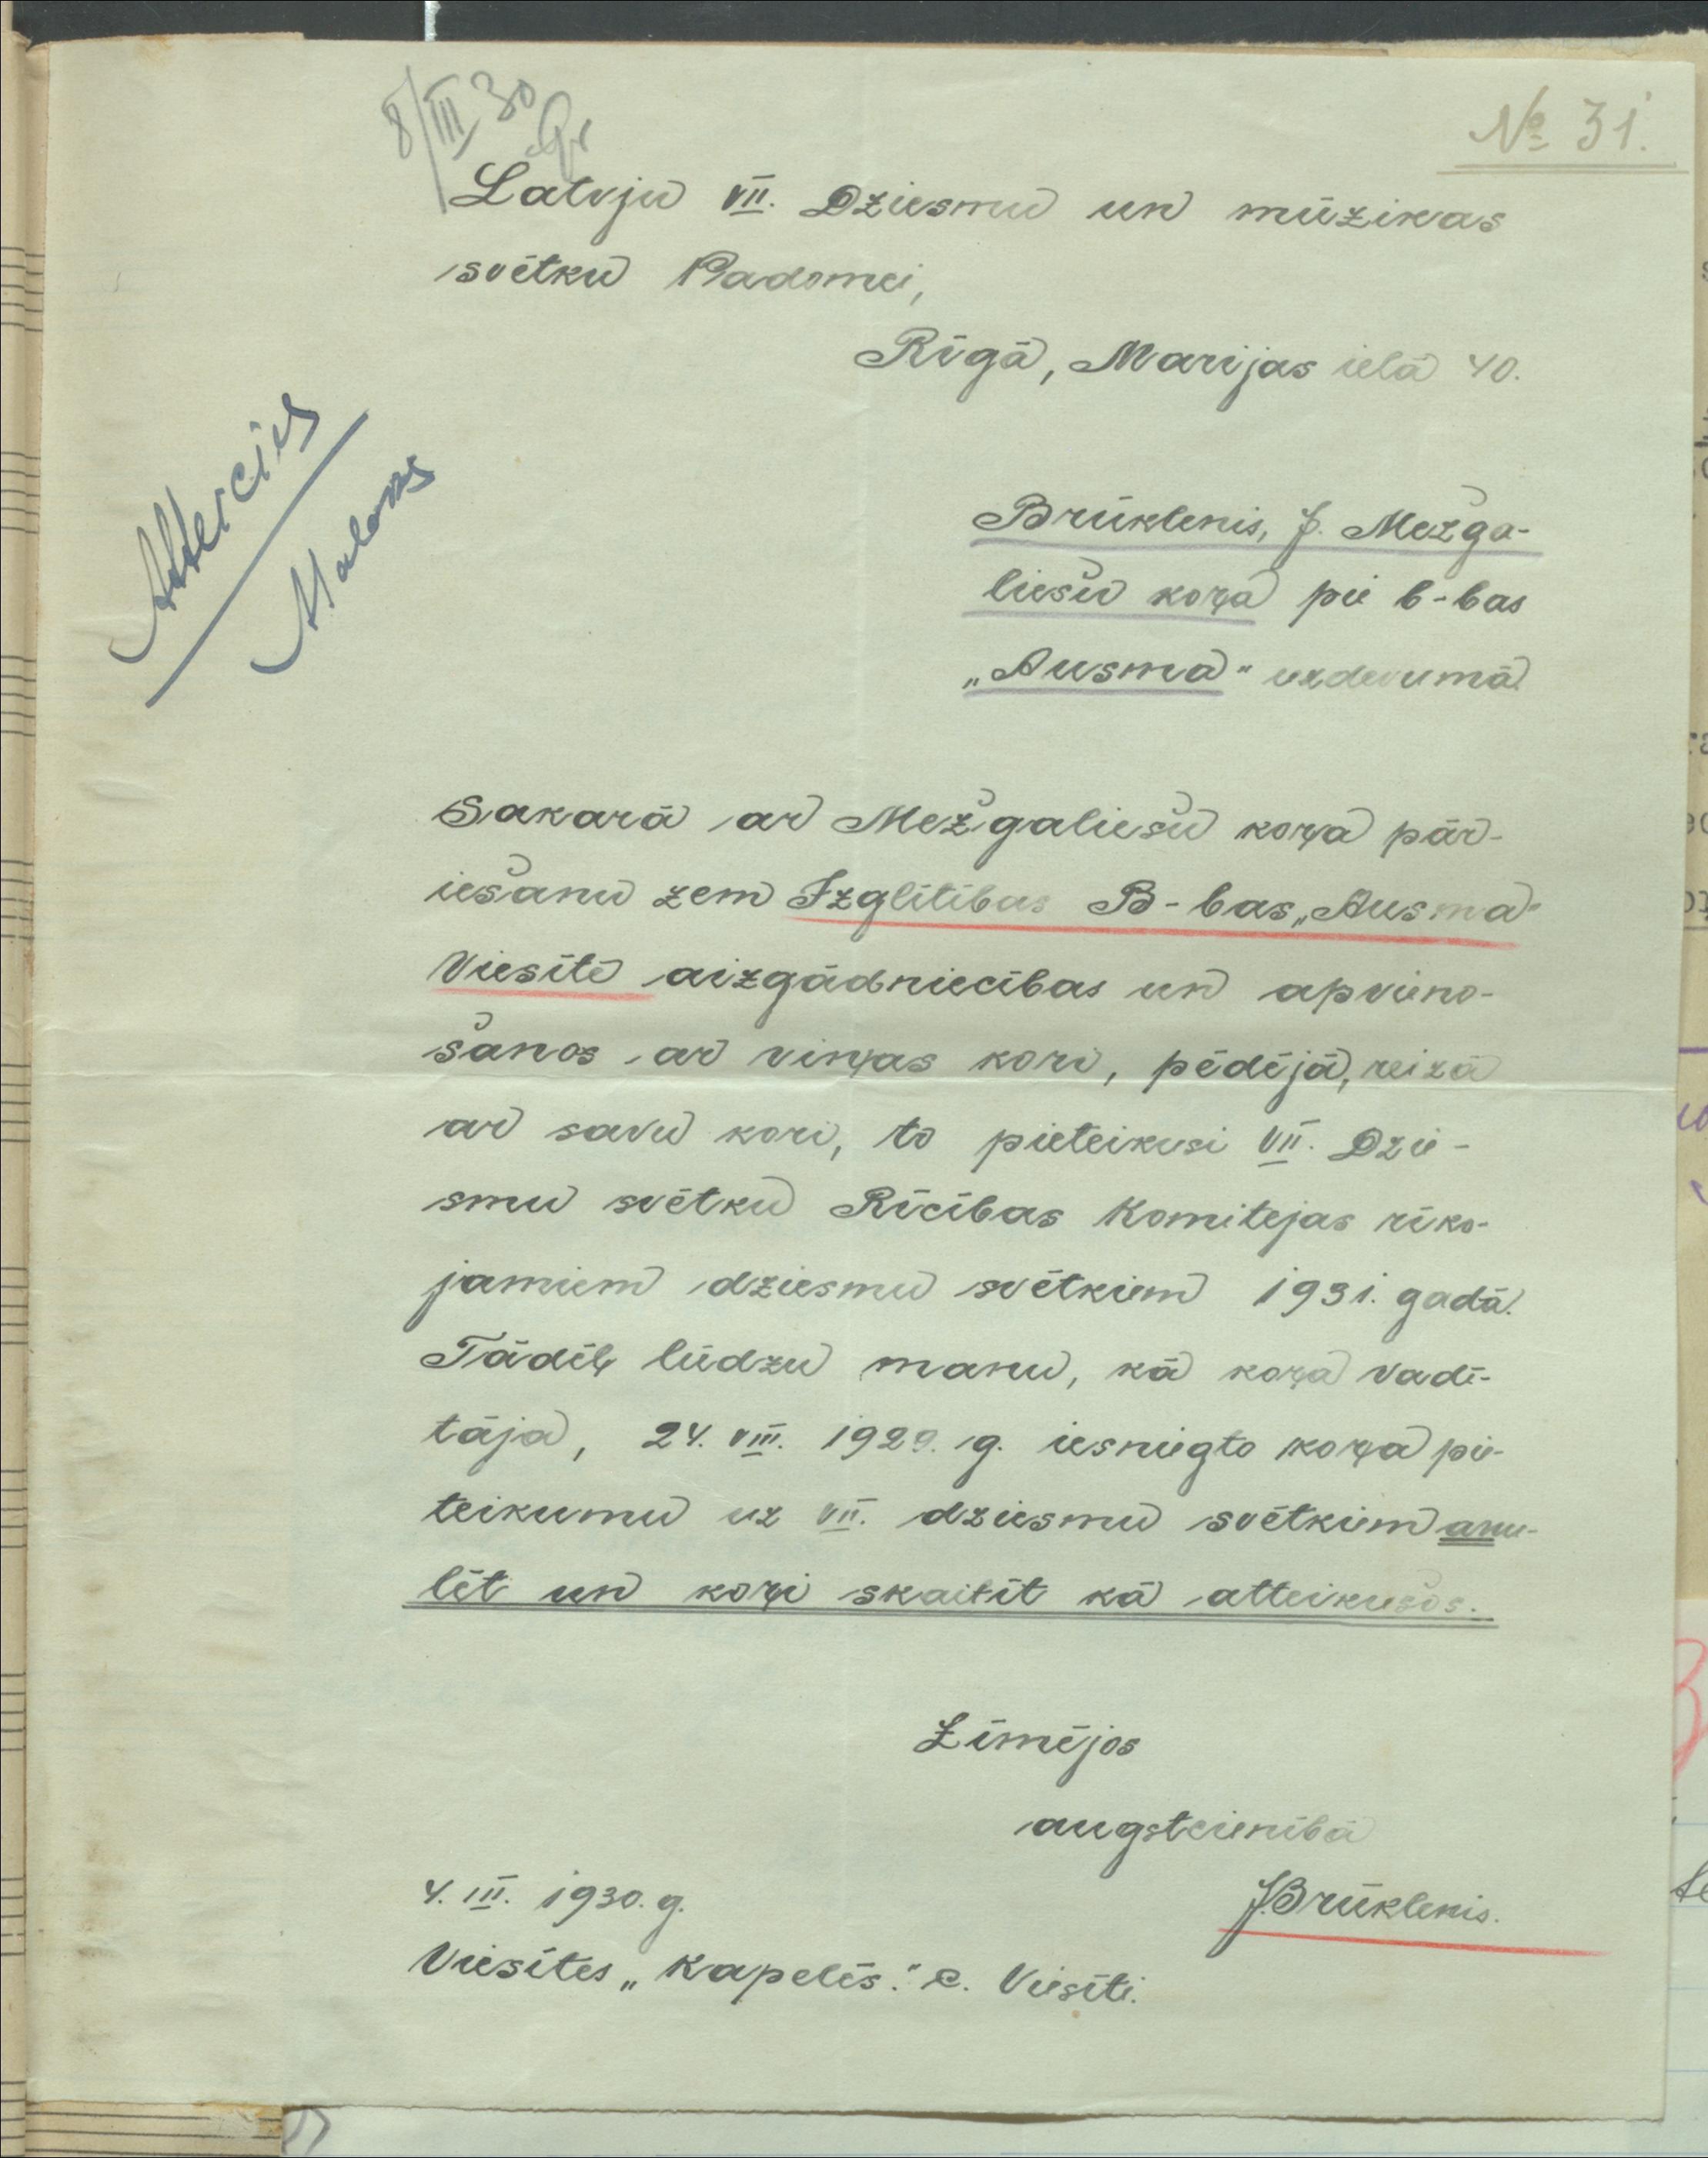 8/III 30
№ 31.
Latvju VII. Dziesmu un mūzikas
svētku Padomei,
Rīgā, Marijas ielā 40.
Brūklenis, J. Mežga-
liešu koŗa pie b-bas
„Ausma" uzdevumā
Sakarā ar Mežgaliešu koŗa pār-
iešanu zem Izglītības B-bas „Ausma"
Viesītē aizgādniecības un apvieno-
šanos ar viņas kori, pēdējā, reizā
ar savu kori, to pieteikusi VII. Dzie-
smu svētku Rīcības Komitejas rīko-
jamiem dziesmu svētkiem 1931. gadā.
Tādēļ lūdzu manu, kā koŗa vadī-
tāja, 24. VIII. 1929. g. iesniegto koŗa pie-
teikumu uz VII. dziesmu svētkiem anu-
lēt un koŗi skaitīt kā atteikušos.
Zīmējos
augstcienībā
4. III. 1930. g.
J. Brūklenis.
Viesītes „Kapelēs." c. Viesīti.